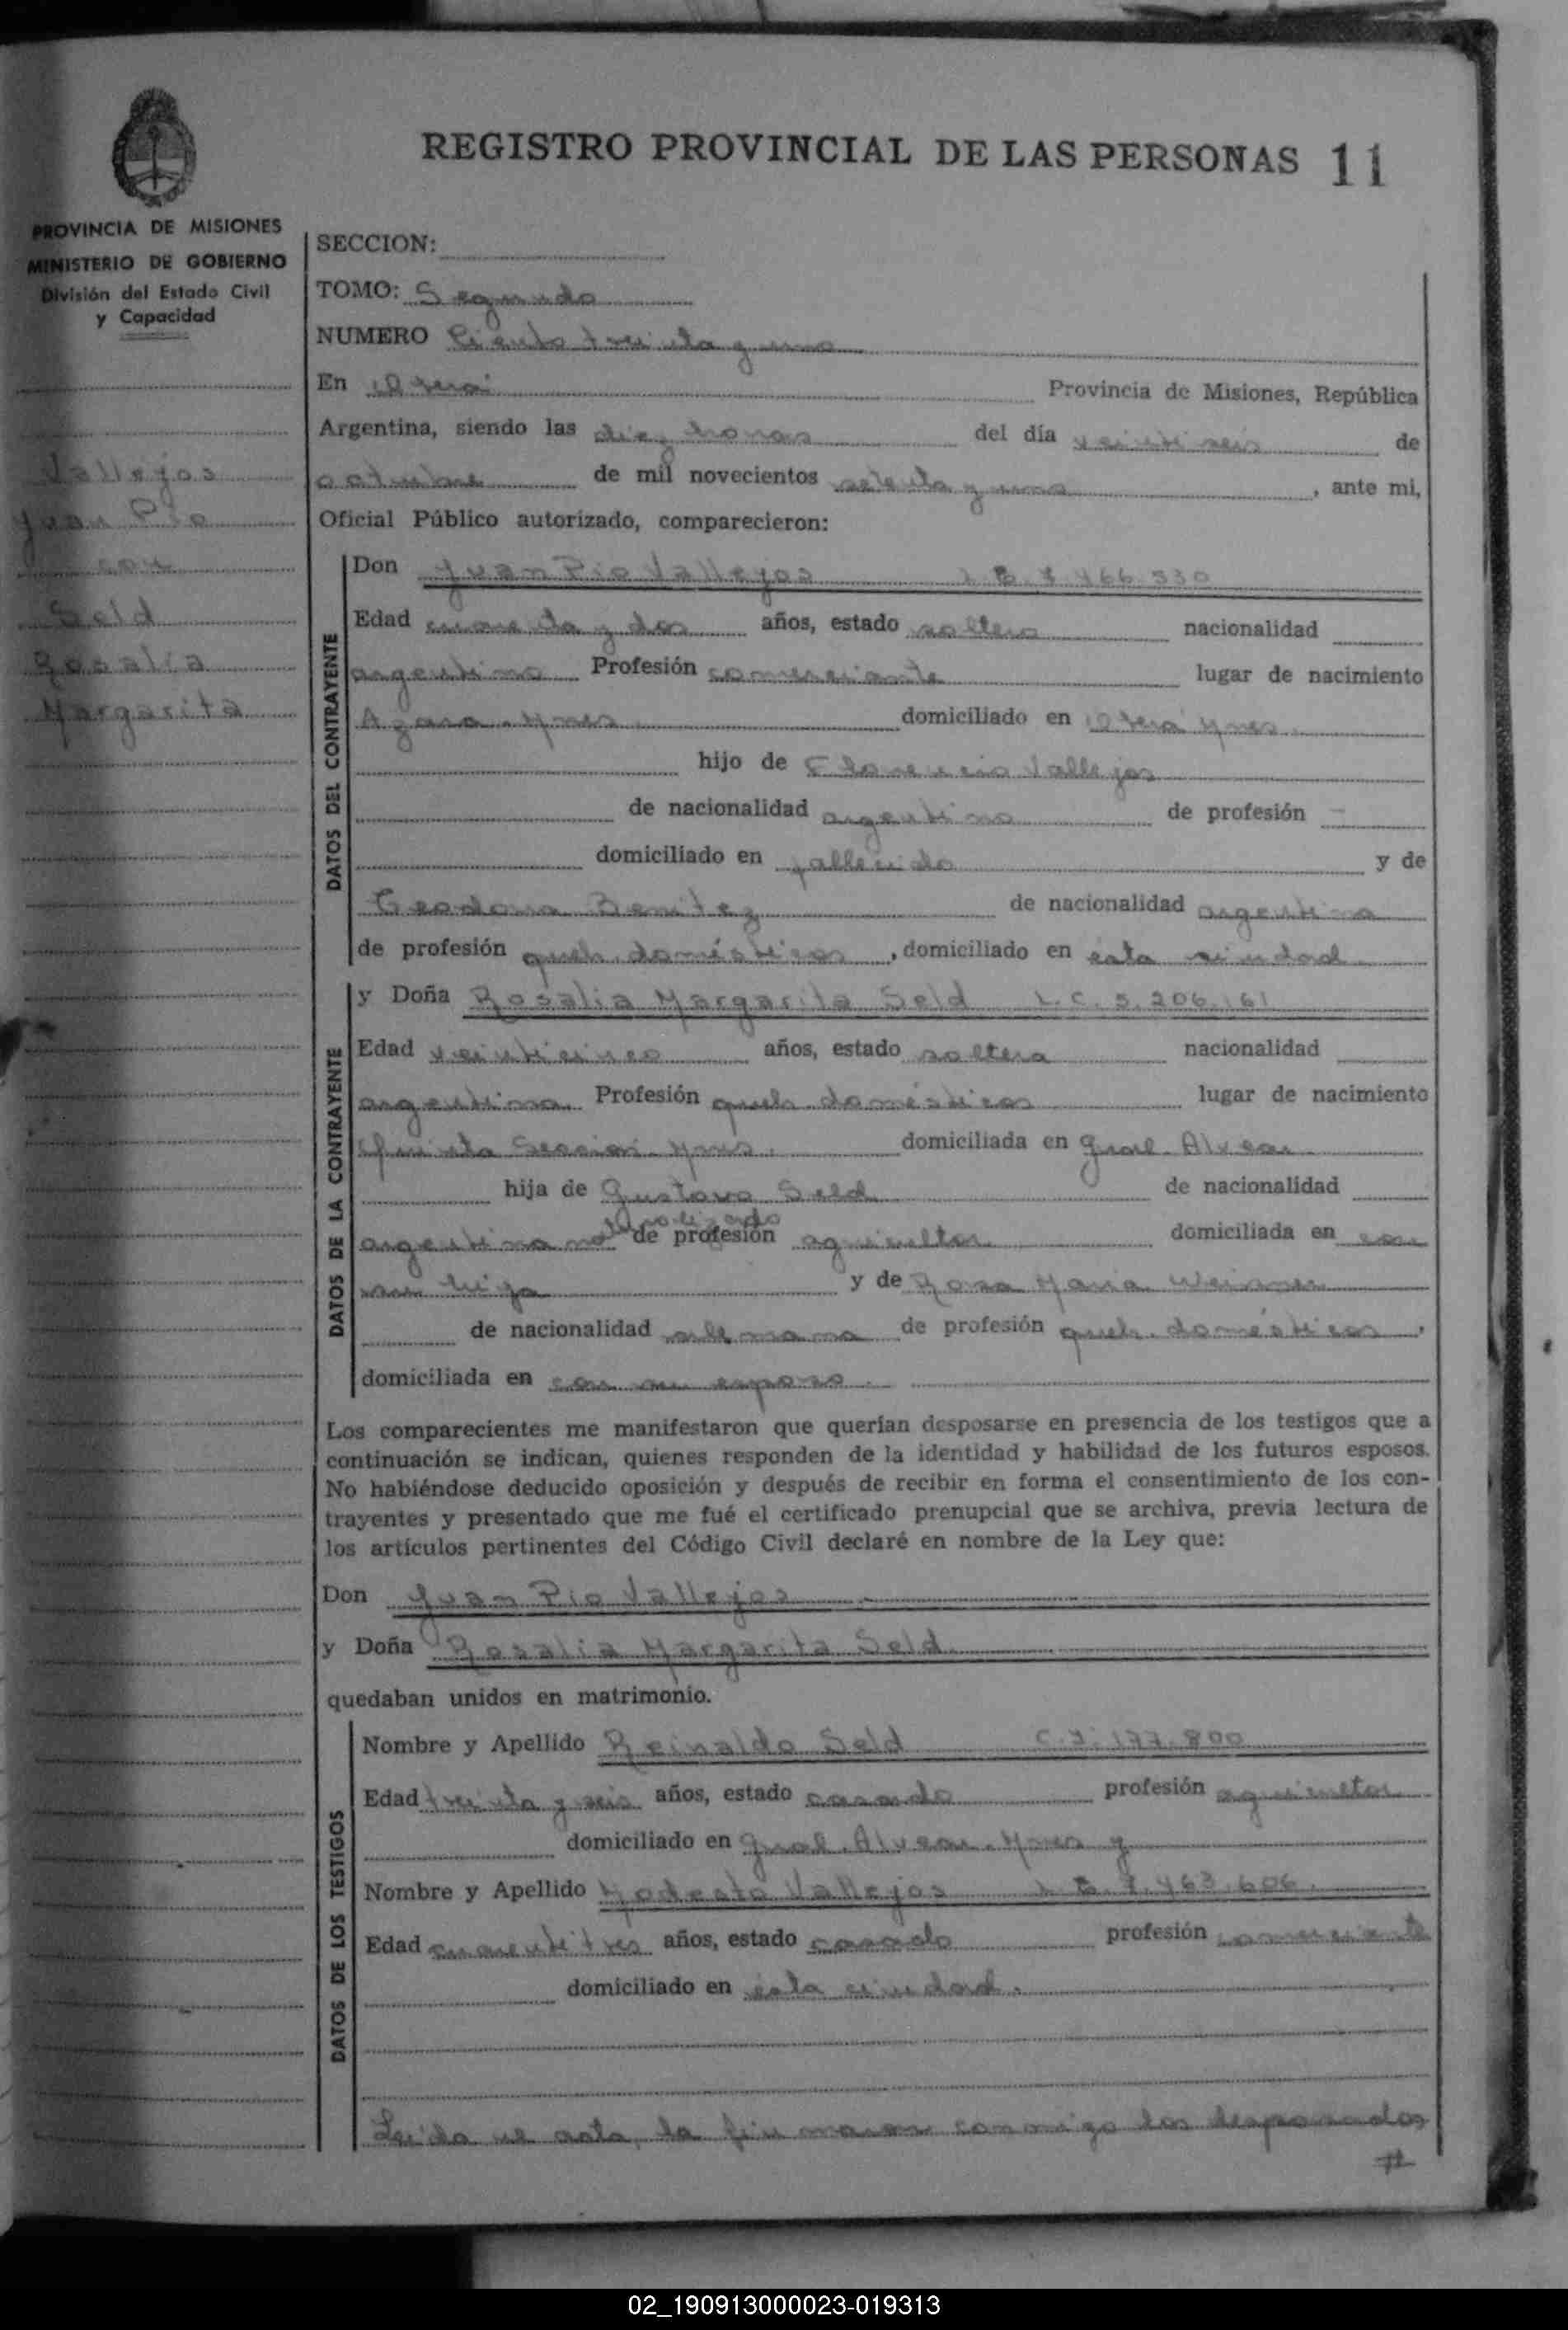 REGISTRO PROVINCIAL DE LAS PERSONAS 11
PROVINCIA DE MISIONES
MINISTERIO DE GOBIERNO
División del Estado Civil
y Capacidad
Vallejos
Juan Pio
con
Seld
Rosalia
Margarita
SECCION:
TOMO: Segundo
NUMERO Ciento treinta y uno
En Oberá Provincia de Misiones, República
Argentina, siendo las diez horas del día veintiseis de
octubre de mil novecientos setenta y uno, ante mi,
Oficial Público autorizado, comparecieron:
DATOS DEL CONTRAYENTE
Don Juan Pio Vallejos L.E. 7.466.330
Edad cuarenta y dos años, estado soltero nacionalidad
argentino Profesión comerciante lugar de nacimiento
Azara. Mnes domiciliado en Oberá Mnes.
hijo de Florencio Vallejos
de nacionalidad argentino de profesión —
domiciliado en fallecido y de
Teodora Benitez de nacionalidad argentina
de profesión queh. domésticos, domiciliado en esta ciudad
DATOS DE LA CONTRAYENTE
y Doña Rosalia Margarita Seld L.C. 5.206.161
Edad veinticinco años, estado soltera nacionalidad
argentina Profesión queh. domésticos lugar de nacimiento
Quinta Sección. Mnes. domiciliada en Gral. Alvear
hija de Gustavo Seld de nacionalidad
argentina de profesión agricultor domiciliada en con
su hija y de Rosa Maria
de nacionalidad alemana de profesión queh. domésticos,
domiciliada en con su esposo.
Los comparecientes me manifestaron que querían desposarse en presencia de los testigos que a
continuación se indican, quienes responden de la identidad y habilidad de los futuros esposos.
No habiéndose deducido oposición y después de recibir en forma el consentimiento de los con-
trayentes y presentado que me fué el certificado prenupcial que se archiva, previa lectura de
los artículos pertinentes del Código Civil declaré en nombre de la Ley que:
Don Juan Pio Vallejos
y Doña Rosalia Margarita Seld
quedaban unidos en matrimonio.
DATOS DE LOS TESTIGOS
Nombre y Apellido Reinaldo Seld C.I. 177.800
Edad treinta y seis años, estado casado profesión agricultor
domiciliado en Gral. Alvear. Mnes y
Nombre y Apellido Modesto Vallejos L.E. 7.463.606.
Edad cuarentitres años, estado casado profesión comerciante
domiciliado en esta ciudad.
Leida el acta, la firmaron conmigo los desposados
02_190913000023-019313